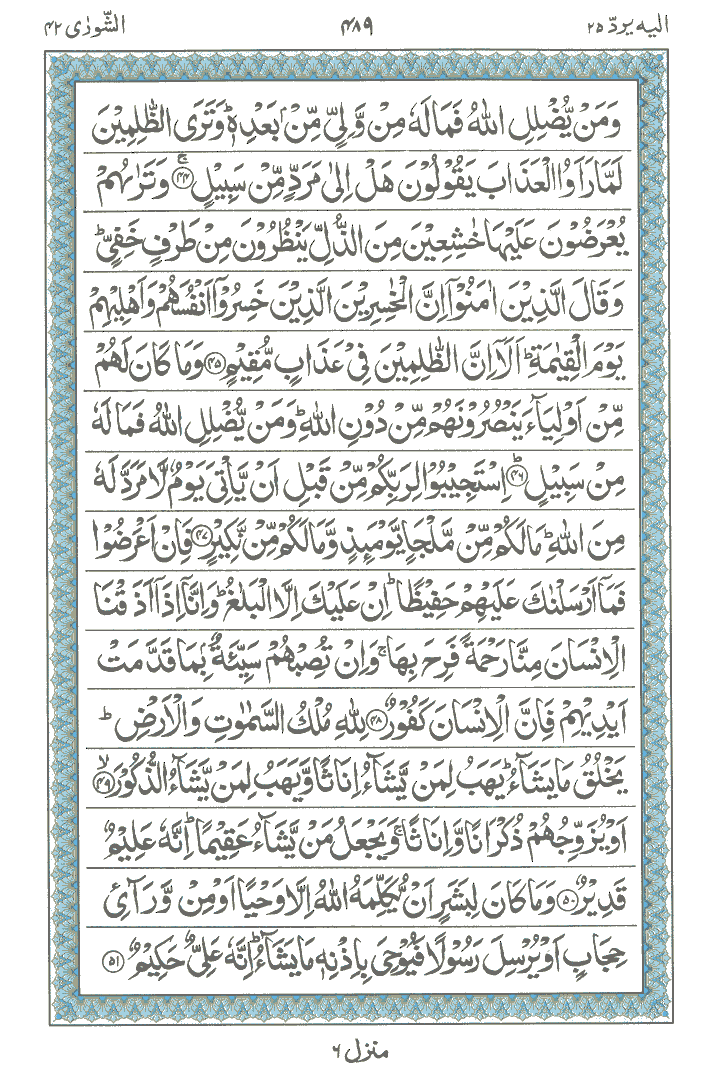 الیہ یردّ ۲۵
۴۸۹
الشّورٰی ۴۲
وَمَنْ يُّضْلِلِ اللّٰهُ فَمَا لَهٗ مِنْ وَّلِيٍّ مِّنْۢ بَعْدِهٖ ؕ وَتَرَى الظّٰلِمِيْنَ
لَمَّا رَاَوُا الْعَذَابَ يَقُوْلُوْنَ هَلْ اِلٰى مَرَدٍّ مِّنْ سَبِيْلٍ ۚ ﴿۴۴﴾ وَتَرٰىهُمْ
يُعْرَضُوْنَ عَلَيْهَا خٰشِعِيْنَ مِنَ الذُّلِّ يَنْظُرُوْنَ مِنْ طَرْفٍ خَفِيٍّ ؕ
وَقَالَ الَّذِيْنَ اٰمَنُوْۤا اِنَّ الْخٰسِرِيْنَ الَّذِيْنَ خَسِرُوْۤا اَنْفُسَهُمْ وَاَهْلِيْهِمْ
يَوْمَ الْقِيٰمَةِ ؕ اَلَاۤ اِنَّ الظّٰلِمِيْنَ فِيْ عَذَابٍ مُّقِيْمٍ ﴿۴۵﴾ وَمَا كَانَ لَهُمْ
مِّنْ اَوْلِيَآءَ يَنْصُرُوْنَهُمْ مِّنْ دُوْنِ اللّٰهِ ؕ وَمَنْ يُّضْلِلِ اللّٰهُ فَمَا لَهٗ
مِنْ سَبِيْلٍ ؕ ﴿۴۶﴾ اِسْتَجِيْبُوْا لِرَبِّكُمْ مِّنْ قَبْلِ اَنْ يَّاْتِيَ يَوْمٌ لَّا مَرَدَّ لَهٗ
مِنَ اللّٰهِ ؕ مَا لَكُمْ مِّنْ مَّلْجَاٍ يَّوْمَئِذٍ وَّمَا لَكُمْ مِّنْ نَّكِيْرٍ ﴿۴۷﴾ فَاِنْ اَعْرَضُوْا
فَمَاۤ اَرْسَلْنٰكَ عَلَيْهِمْ حَفِيْظًا ؕ اِنْ عَلَيْكَ اِلَّا الْبَلٰغُ ؕ وَاِنَّاۤ اِذَاۤ اَذَقْنَا
الْاِنْسَانَ مِنَّا رَحْمَةً فَرِحَ بِهَا ۚ وَاِنْ تُصِبْهُمْ سَيِّئَةٌۢ بِمَا قَدَّمَتْ
اَيْدِيْهِمْ فَاِنَّ الْاِنْسَانَ كَفُوْرٌ ﴿۴۸﴾ لِلّٰهِ مُلْكُ السَّمٰوٰتِ وَالْاَرْضِ ؕ
يَخْلُقُ مَا يَشَآءُ ؕ يَهَبُ لِمَنْ يَّشَآءُ اِنَاثًا وَّيَهَبُ لِمَنْ يَّشَآءُ الذُّكُوْرَ ۙ ﴿۴۹﴾
اَوْ يُزَوِّجُهُمْ ذُكْرَانًا وَّاِنَاثًا ۚ وَيَجْعَلُ مَنْ يَّشَآءُ عَقِيْمًا ؕ اِنَّهٗ عَلِيْمٌ
قَدِيْرٌ ﴿۵۰﴾ وَمَا كَانَ لِبَشَرٍ اَنْ يُّكَلِّمَهُ اللّٰهُ اِلَّا وَحْيًا اَوْ مِنْ وَّرَآئِ
حِجَابٍ اَوْ يُرْسِلَ رَسُوْلًا فَيُوْحِيَ بِاِذْنِهٖ مَا يَشَآءُ ؕ اِنَّهٗ عَلِيٌّ حَكِيْمٌ ﴿۵۱﴾
منزل ۶